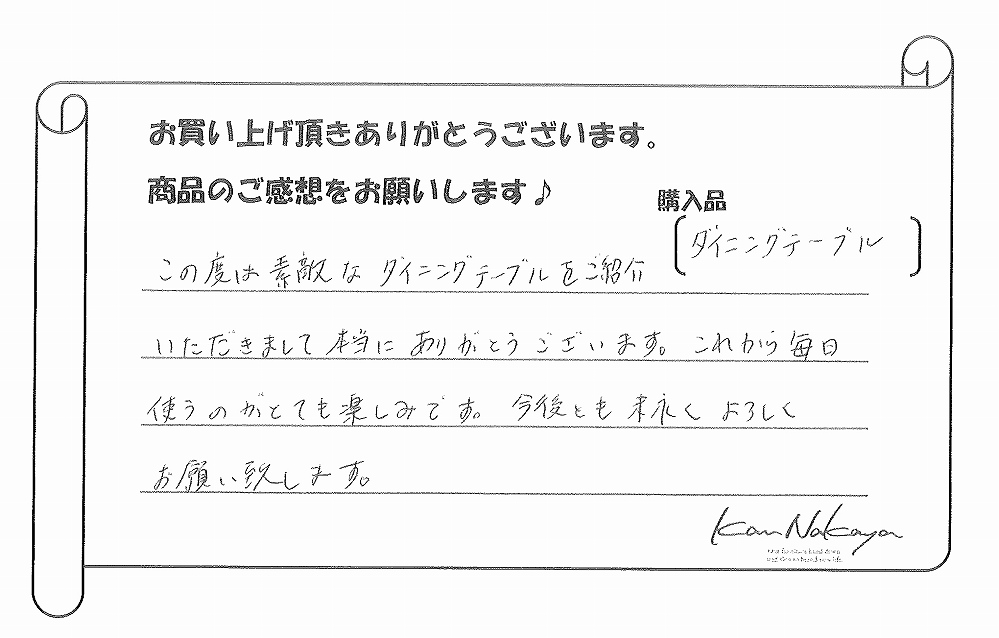 お買い上げ頂きありがとうございます。
商品のご感想をお願いします♪
購入品
ダイニングテーブル
この度は素敵なダイニングテーブルをご紹介
いただきまして本当にありがとうございます。これから毎日
使うのがとても楽しみです。今後とも末永くよろしく
お願い致します。
Kan Nakaya